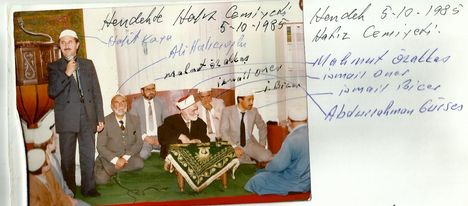 Hendekde Hafız Cemiyeti
5-10-1985
Halit Kaya
Ali Halıcıoğlu
ismail öner
i. Bicer
Hendek 5-10-1985
Hafız Cemiyeti.
Mahmut özakkaş
ismail öner
ismail Biçer
Abdurrahman Gürses